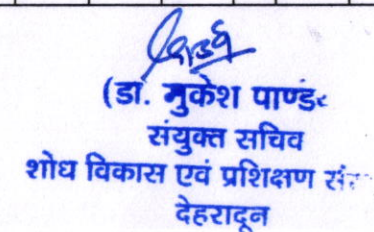 (डा. मुकेश पाण्डे
संयुक्त सचिव
शोध विकास एवं प्रशिक्षण
देहरादून